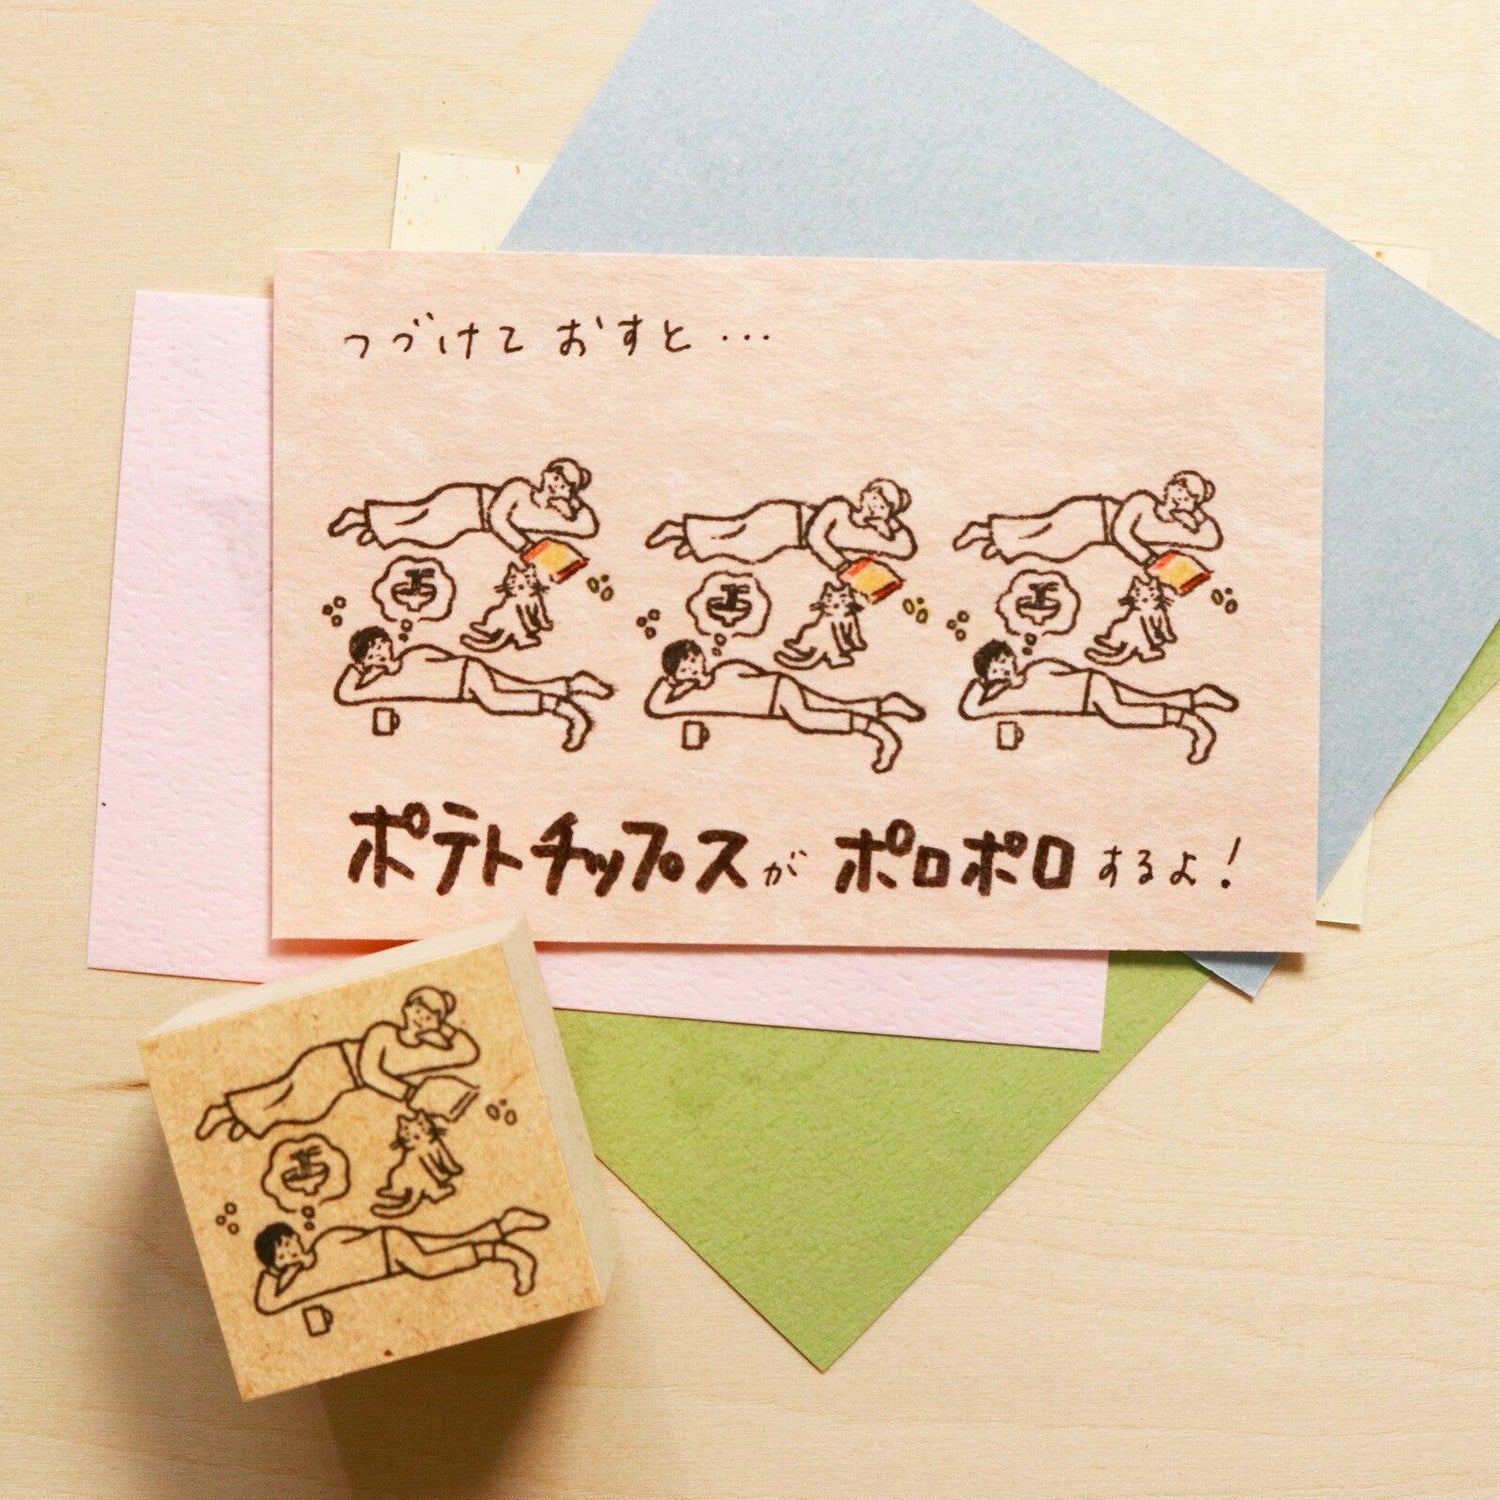 つづけて おすと・・・
ポテトチップスが ポロポロするよ!